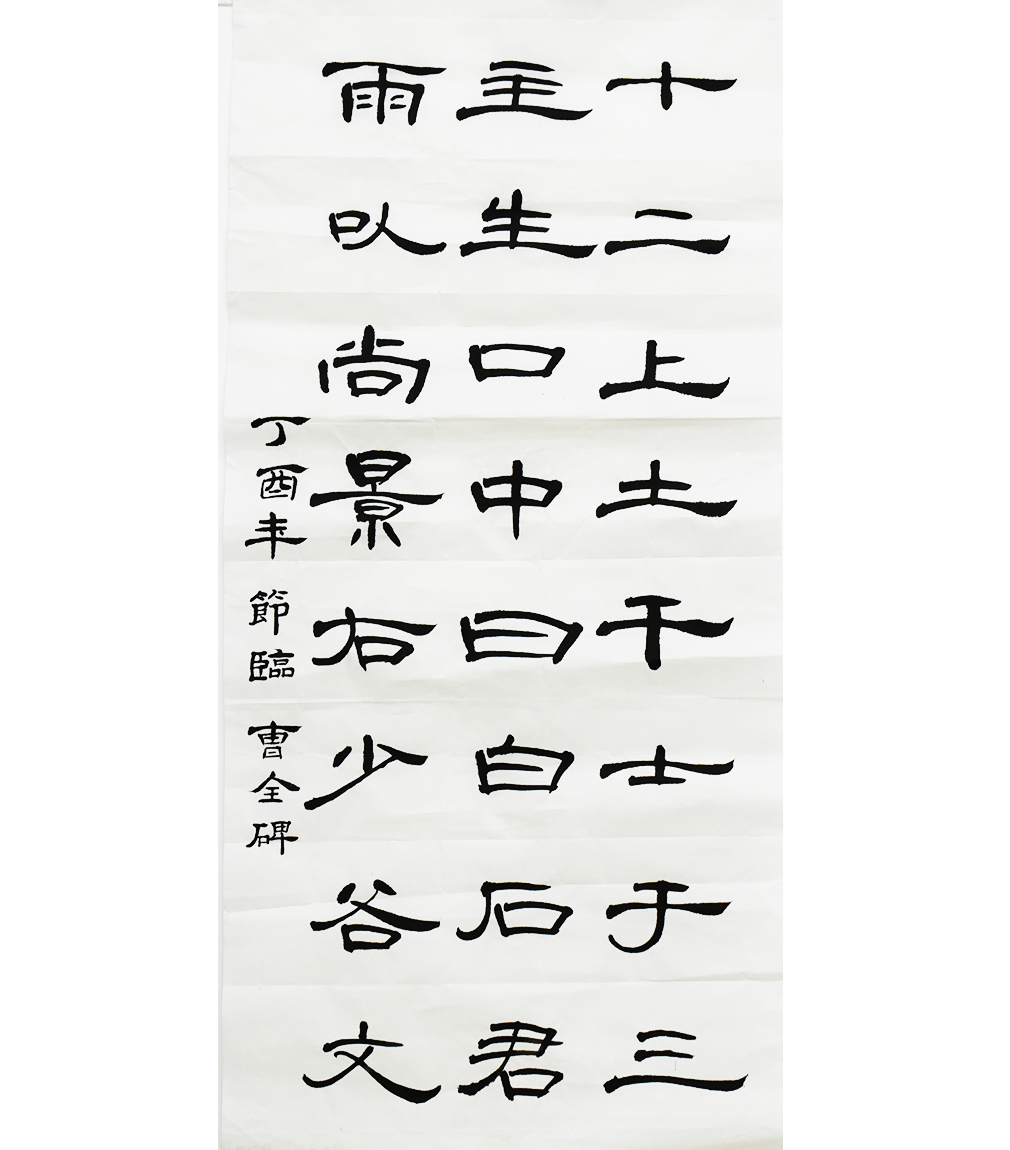 十二上土干士于三
主生口中曰白石君
雨以尚景右少谷文
丁酉年 節臨 曹全碑